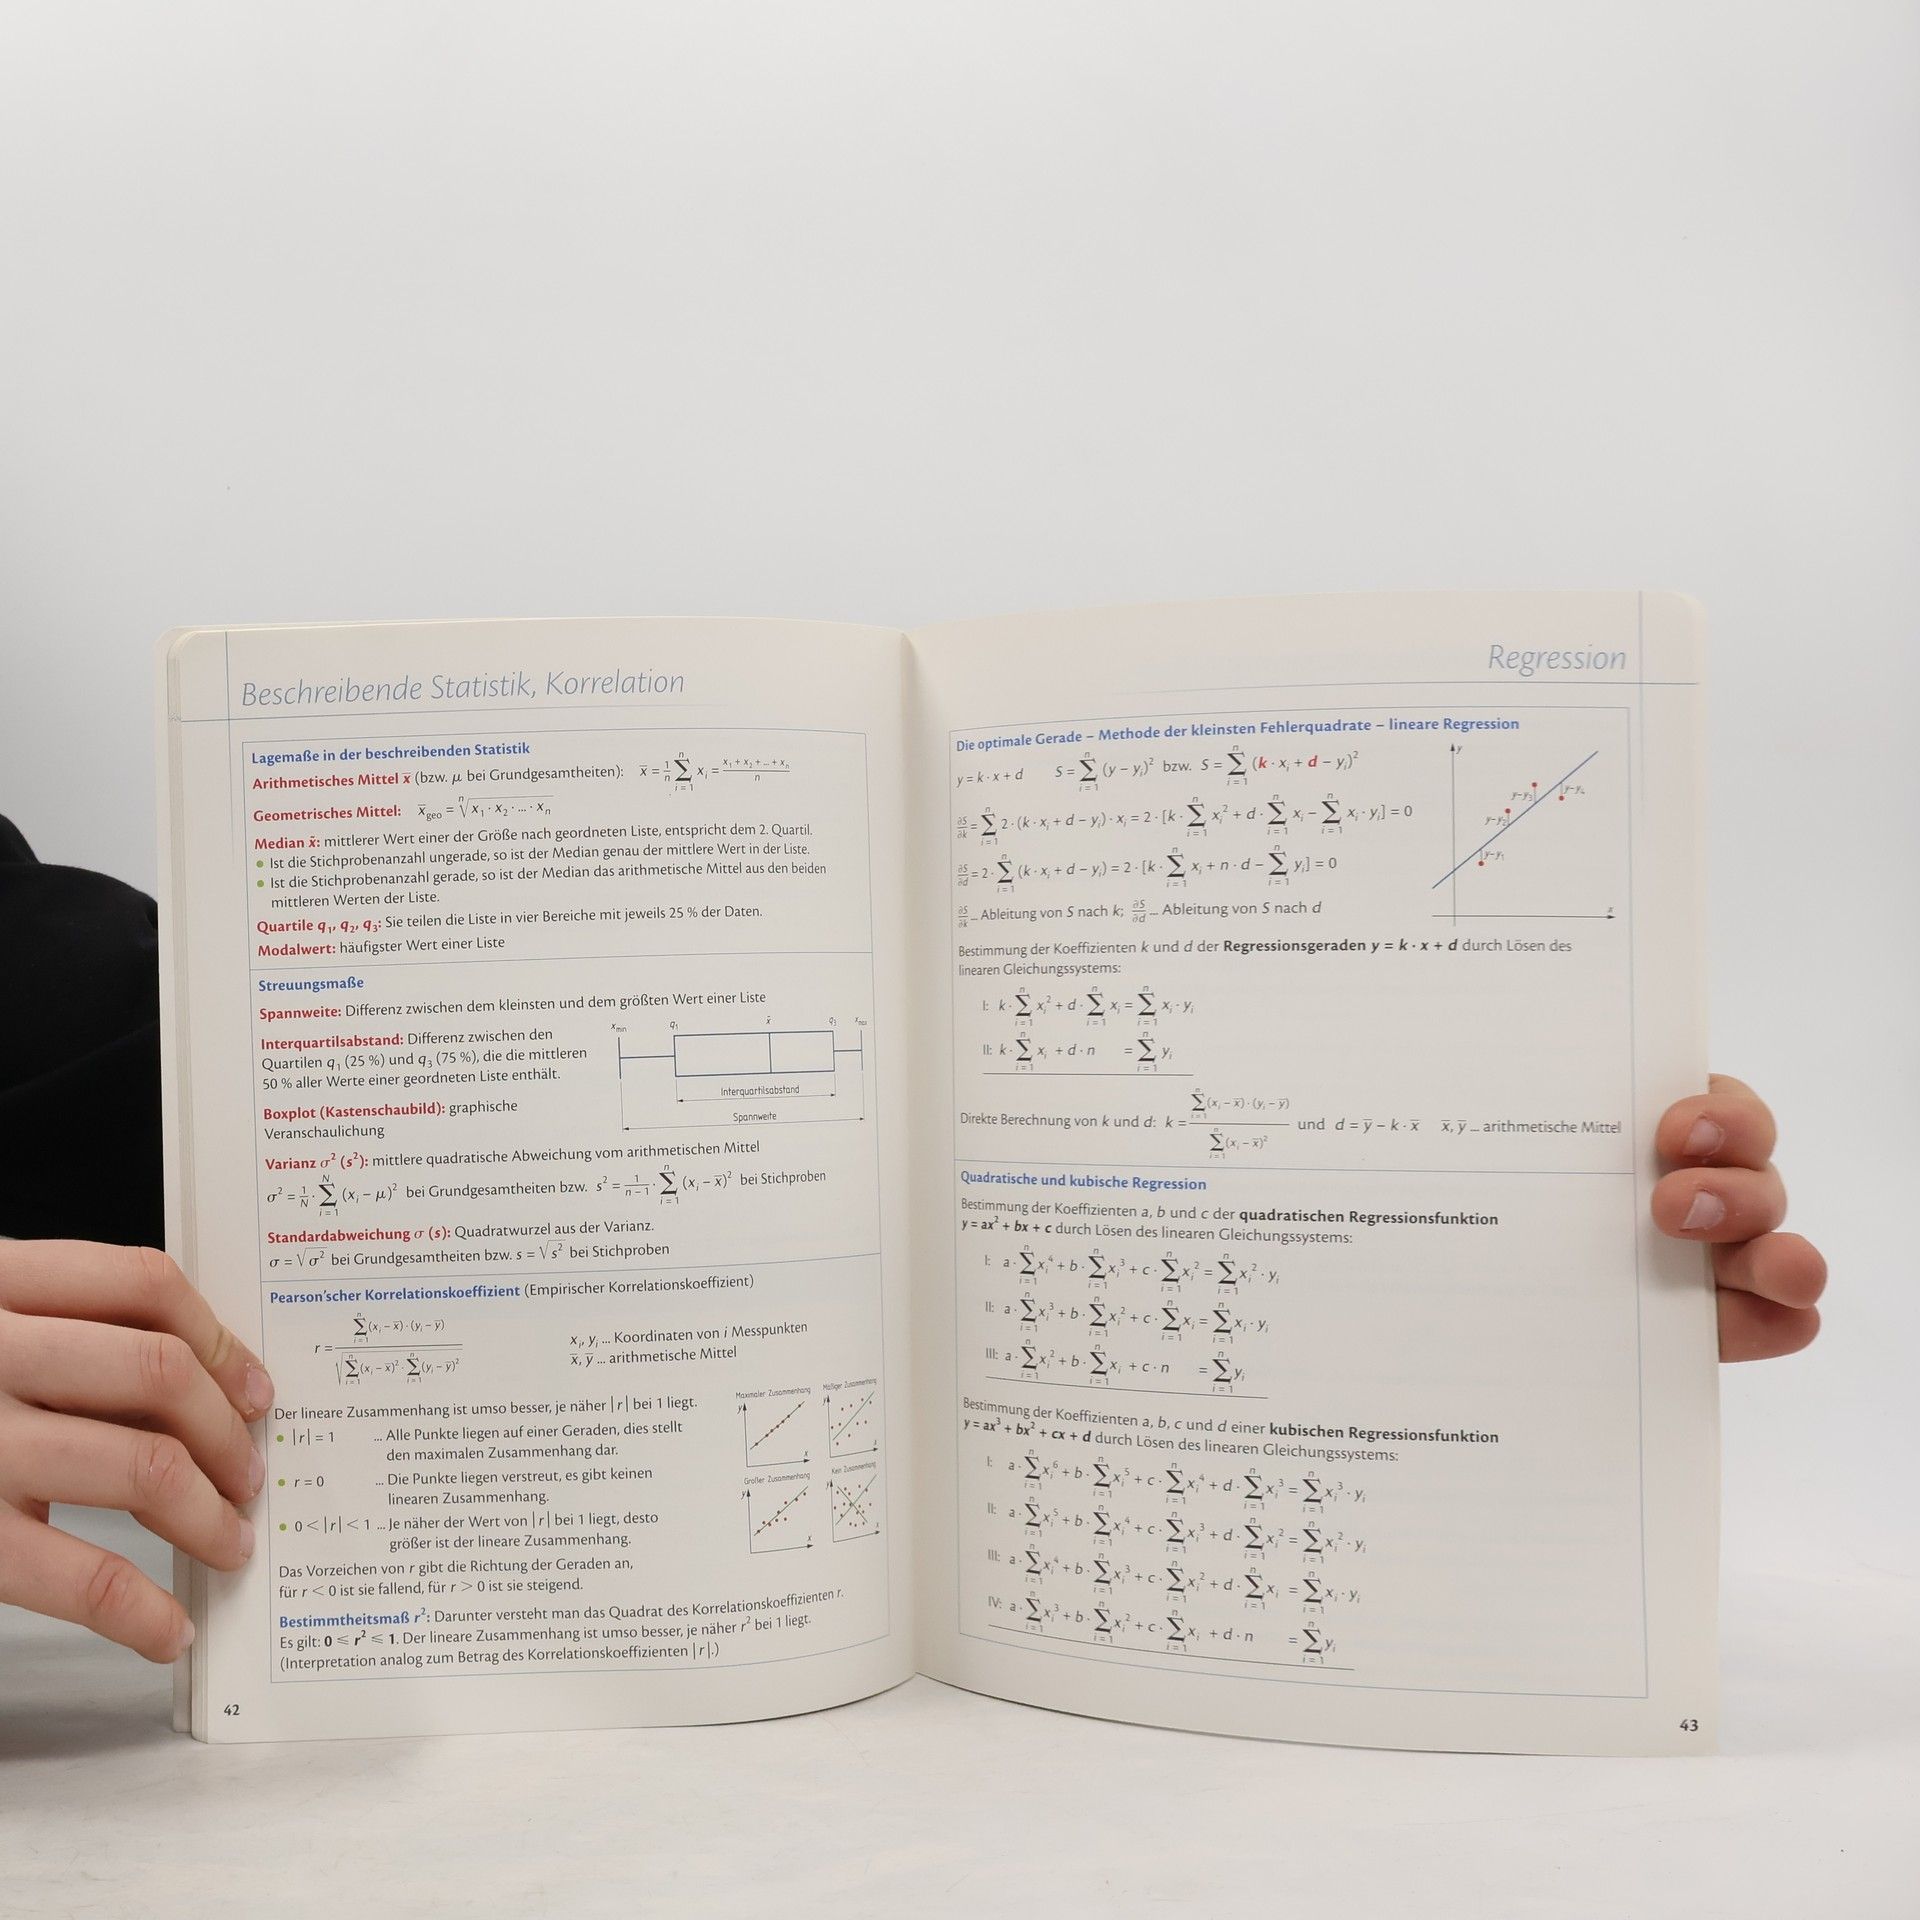 Beschreibende Statistik, Korrelation
Lagemaße in der beschreibenden Statistik
Arithmetisches Mittel x̄ (bzw. μ bei Grundgesamtheiten): x̄ = 1/n ∑_{i=1}^{n} x_i = (x₁ + x₂ + ... + x_n)/n
Geometrisches Mittel: x̄_geo = ⁿ√(x₁ · x₂ · ... · x_n)
Median x̃: mittlerer Wert einer der Größe nach geordneten Liste, entspricht dem 2. Quartil.
• Ist die Stichprobenanzahl ungerade, so ist der Median genau der mittlere Wert in der Liste.
• Ist die Stichprobenanzahl gerade, so ist der Median das arithmetische Mittel aus den beiden
mittleren Werten der Liste.
Quartile q₁, q₂, q₃: Sie teilen die Liste in vier Bereiche mit jeweils 25 % der Daten.
Modalwert: häufigster Wert einer Liste
Streuungsmaße
Spannweite: Differenz zwischen dem kleinsten und dem größten Wert einer Liste
Interquartilsabstand: Differenz zwischen den
Quartilen q₁ (25 %) und q₃ (75 %), die die mittleren
50 % aller Werte einer geordneten Liste enthält.
Boxplot (Kastenschaubild): graphische
Veranschaulichung
x_min q₁ x̃ q₃ x_max
Interquartilsabstand
Spannweite
Varianz σ² (s²): mittlere quadratische Abweichung vom arithmetischen Mittel
σ² = 1/N · ∑_{i=1}^{N} (x_i − μ)² bei Grundgesamtheiten bzw. s² = 1/(n−1) · ∑_{i=1}^{n} (x_i − x̄)² bei Stichproben
Standardabweichung σ (s): Quadratwurzel aus der Varianz.
σ = √σ² bei Grundgesamtheiten bzw. s = √s² bei Stichproben
Pearson'scher Korrelationskoeffizient (Empirischer Korrelationskoeffizient)
r = ∑_{i=1}^{n} (x_i − x̄) · (y_i − ȳ) / √(∑_{i=1}^{n} (x_i − x̄)² · ∑_{i=1}^{n} (y_i − ȳ)²)
x_i, y_i ... Koordinaten von i Messpunkten
x̄, ȳ ... arithmetische Mittel
Der lineare Zusammenhang ist umso besser, je näher |r| bei 1 liegt.
• |r| = 1 ... Alle Punkte liegen auf einer Geraden, dies stellt
den maximalen Zusammenhang dar.
• r = 0 ... Die Punkte liegen verstreut, es gibt keinen
linearen Zusammenhang.
• 0 < |r| < 1 ... Je näher der Wert von |r| bei 1 liegt, desto
größer ist der lineare Zusammenhang.
Maximaler Zusammenhang
y x
Mäßiger Zusammenhang
y x
Großer Zusammenhang
y x
Kein Zusammenhang
y x
Das Vorzeichen von r gibt die Richtung der Geraden an,
für r < 0 ist sie fallend, für r > 0 ist sie steigend.
Bestimmtheitsmaß r²: Darunter versteht man das Quadrat des Korrelationskoeffizienten r.
Es gilt: 0 ≤ r² ≤ 1. Der lineare Zusammenhang ist umso besser, je näher r² bei 1 liegt.
(Interpretation analog zum Betrag des Korrelationskoeffizienten |r|.)
42
Regression
Die optimale Gerade – Methode der kleinsten Fehlerquadrate – lineare Regression
y = k · x + d S = ∑_{i=1}^{n} (y − y_i)² bzw. S = ∑_{i=1}^{n} (k · x_i + d − y_i)²
∂S/∂k = ∑_{i=1}^{n} 2 · (k · x_i + d − y_i) · x_i = 2 · [k · ∑_{i=1}^{n} x_i² + d · ∑_{i=1}^{n} x_i − ∑_{i=1}^{n} x_i · y_i] = 0
∂S/∂d = 2 · ∑_{i=1}^{n} (k · x_i + d − y_i) = 2 · [k · ∑_{i=1}^{n} x_i + n · d − ∑_{i=1}^{n} y_i] = 0
∂S/∂k ... Ableitung von S nach k; ∂S/∂d ... Ableitung von S nach d
y x
y−y₁ y−y₂ y−y₃ y−y₄
Bestimmung der Koeffizienten k und d der Regressionsgeraden y = k · x + d durch Lösen des
linearen Gleichungssystems:
I: k · ∑_{i=1}^{n} x_i² + d · ∑_{i=1}^{n} x_i = ∑_{i=1}^{n} x_i · y_i
II: k · ∑_{i=1}^{n} x_i + d · n = ∑_{i=1}^{n} y_i
Direkte Berechnung von k und d: k = ∑_{i=1}^{n} (x_i − x̄) · (y_i − ȳ) / ∑_{i=1}^{n} (x_i − x̄)² und d = ȳ − k · x̄ x̄, ȳ ... arithmetische Mittel
Quadratische und kubische Regression
Bestimmung der Koeffizienten a, b und c der quadratischen Regressionsfunktion
y = ax² + bx + c durch Lösen des linearen Gleichungssystems:
I: a · ∑_{i=1}^{n} x_i⁴ + b · ∑_{i=1}^{n} x_i³ + c · ∑_{i=1}^{n} x_i² = ∑_{i=1}^{n} x_i² · y_i
II: a · ∑_{i=1}^{n} x_i³ + b · ∑_{i=1}^{n} x_i² + c · ∑_{i=1}^{n} x_i = ∑_{i=1}^{n} x_i · y_i
III: a · ∑_{i=1}^{n} x_i² + b · ∑_{i=1}^{n} x_i + c · n = ∑_{i=1}^{n} y_i
Bestimmung der Koeffizienten a, b, c und d einer kubischen Regressionsfunktion
y = ax³ + bx² + cx + d durch Lösen des linearen Gleichungssystems:
I: a · ∑_{i=1}^{n} x_i⁶ + b · ∑_{i=1}^{n} x_i⁵ + c · ∑_{i=1}^{n} x_i⁴ + d · ∑_{i=1}^{n} x_i³ = ∑_{i=1}^{n} x_i³ · y_i
II: a · ∑_{i=1}^{n} x_i⁵ + b · ∑_{i=1}^{n} x_i⁴ + c · ∑_{i=1}^{n} x_i³ + d · ∑_{i=1}^{n} x_i² = ∑_{i=1}^{n} x_i² · y_i
III: a · ∑_{i=1}^{n} x_i⁴ + b · ∑_{i=1}^{n} x_i³ + c · ∑_{i=1}^{n} x_i² + d · ∑_{i=1}^{n} x_i = ∑_{i=1}^{n} x_i · y_i
IV: a · ∑_{i=1}^{n} x_i³ + b · ∑_{i=1}^{n} x_i² + c · ∑_{i=1}^{n} x_i + d · n = ∑_{i=1}^{n} y_i
43